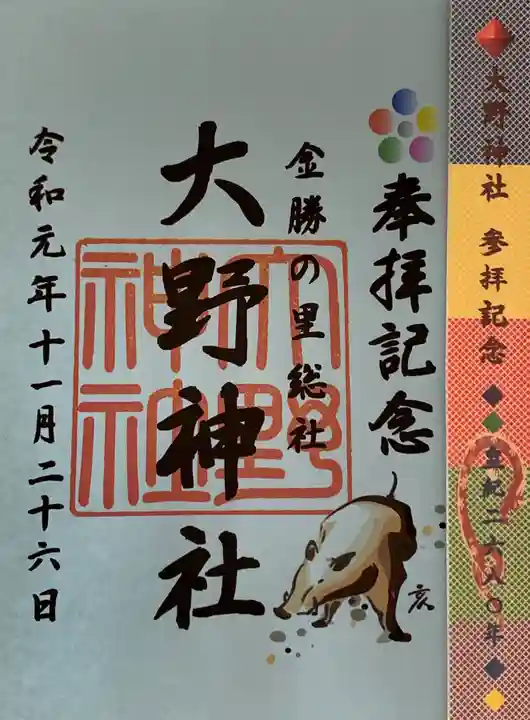 大野神社 参拝記念◆◆皇紀二六八〇年◆◆
奉拝記念
金勝の里総社
大野神社
令和元年十一月二十六日
大野
神社
亥